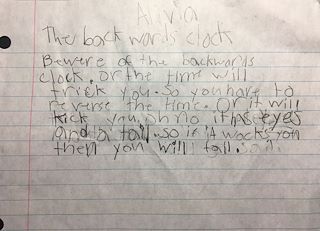 Alivia
The backwords clock
Beware of the backwards
clock. Or the time will
trick you. So you have to
reverse the time. Or it will
kick you. oh no it has eyes
and a tail. so if it wacks you
then you will fall. said